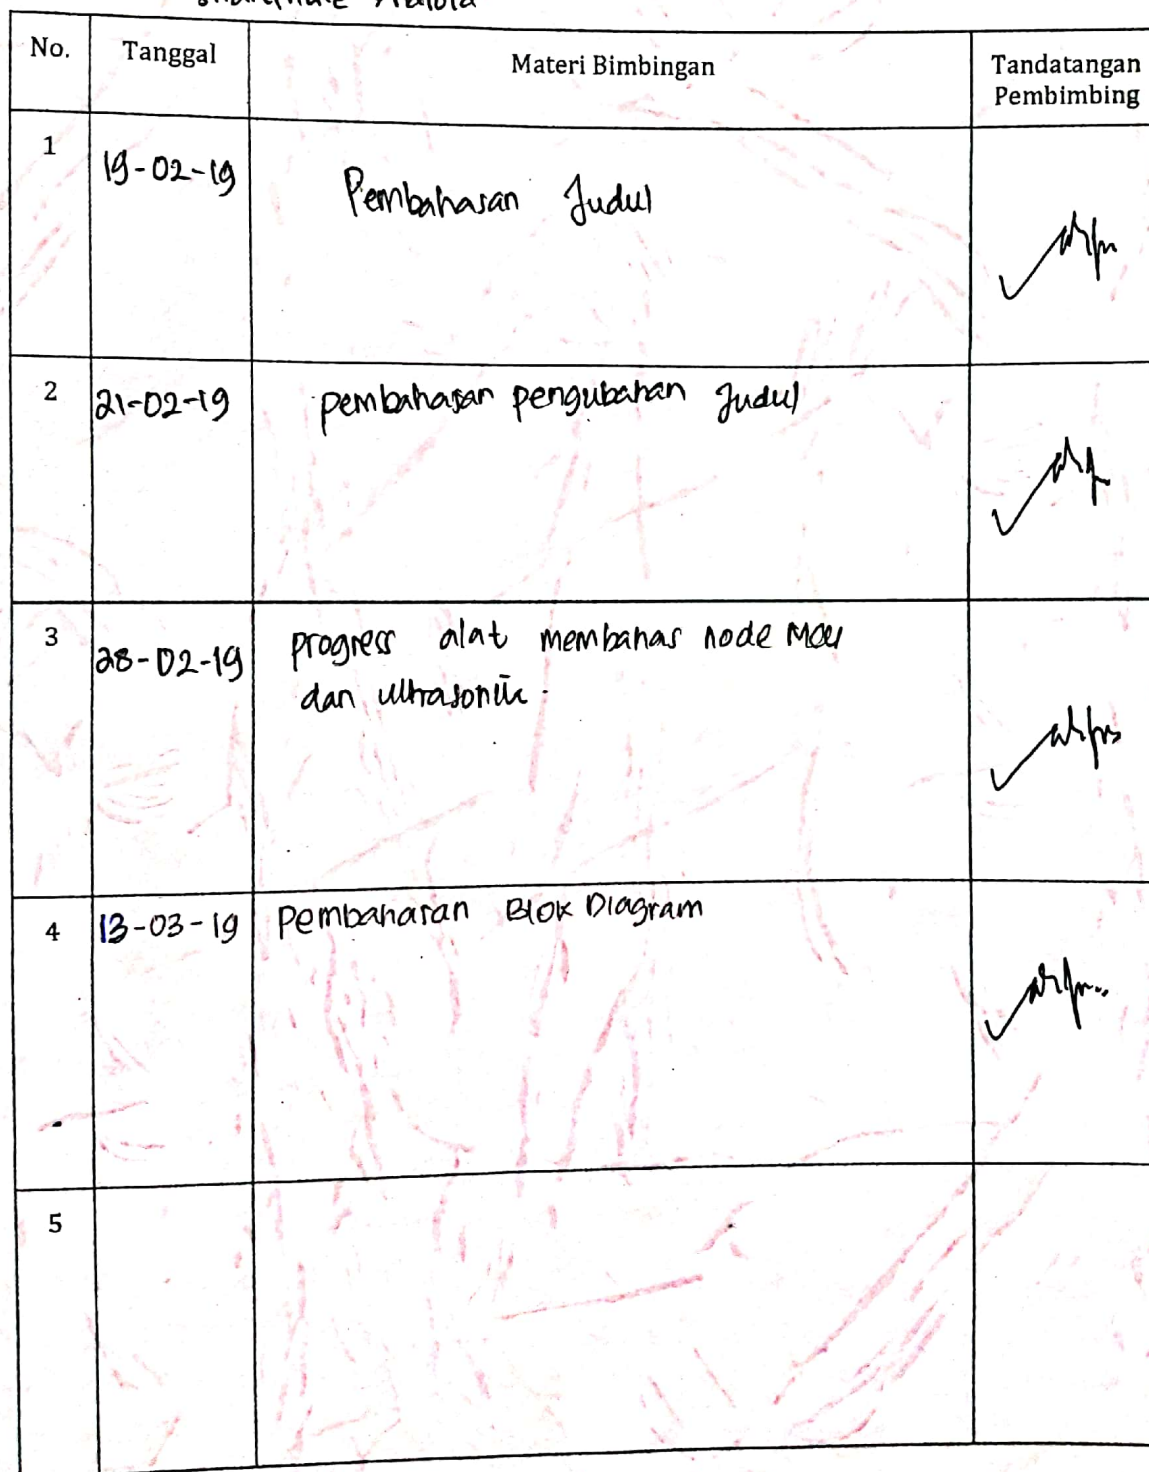 No. Tanggal Materi Bimbingan Tandatangan
Pembimbing
1 19-02-19 Pembahasan Judul
2 21-02-19 pembahasan pengubahan Judul
3 28-02-19 progress alat membahas node MCU
dan ultrasonik.
4 13-03-19 Pembahasan Blok Diagram
5